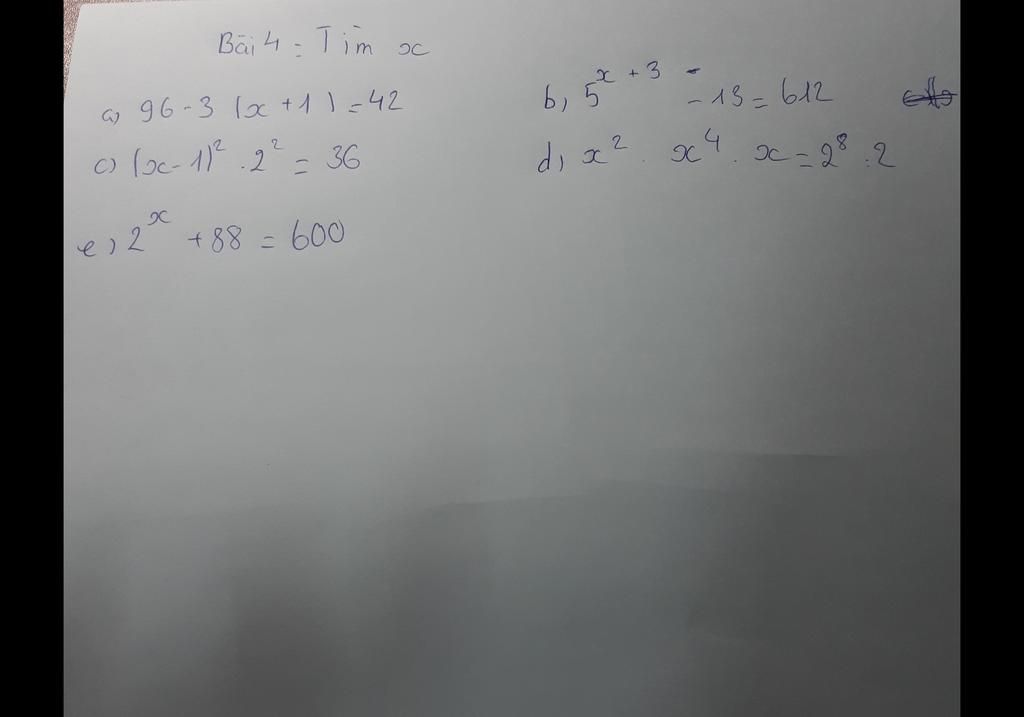 Bài 4: Tìm x
a) 96 - 3 (x + 1) = 42 b) 5^{x + 3} - 13 = 612
c) (x - 1)² . 2² = 36 d) x² . x⁴ . x = 2⁸ : 2
e) 2^x + 88 = 600